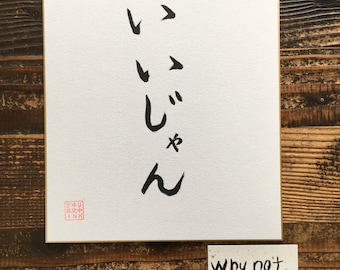 いいじゃん
why not.